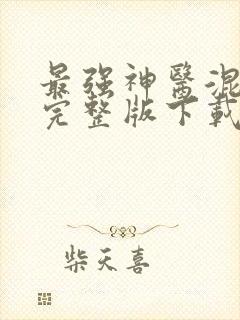 最强神醫混
完整版下載
柴天喜